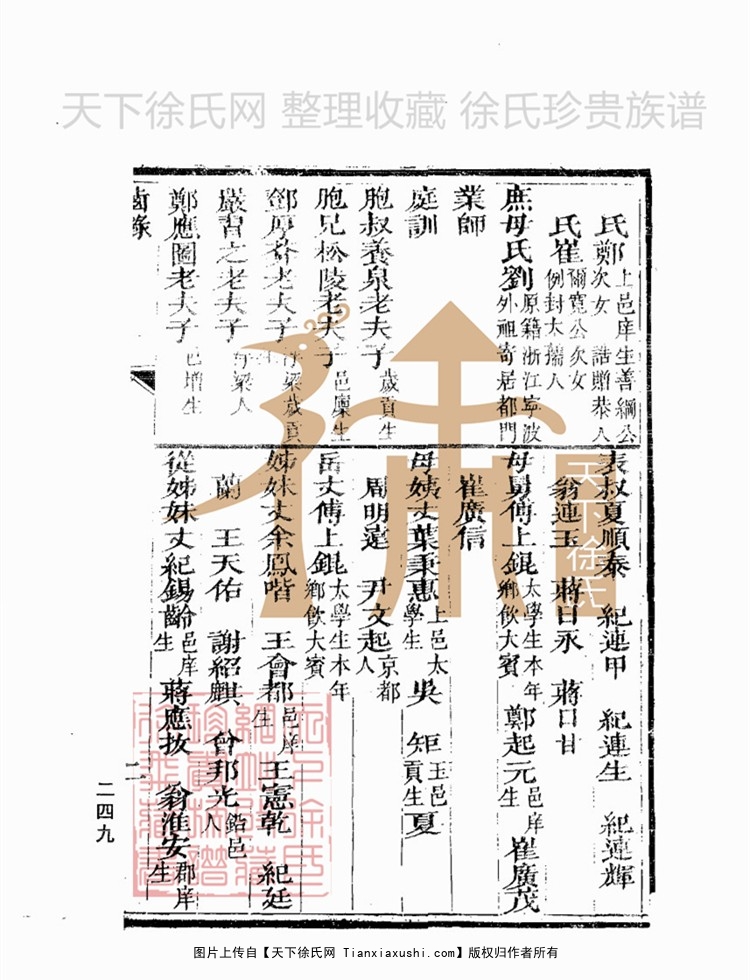 天下徐氏网 整理收藏 徐氏珍贵族谱
氏鄭上邑庠生善綱公次女 誥贈恭人
氏崔爾寬公次女例封太孺人
庶母氏劉原籍浙江寧波外祖寄居都門
業師
庭訓
胞叔養泉老夫子歲貢生
胞兄松陵老夫子邑廩生
鄧厚
老夫子
梁歲貢
嚴習之老夫子
梁人
鄭應圖老夫子邑增生
齒錄
表叔夏順泰 紀連甲 紀連生 紀連輝
翁連玉 蔣日永 蔣日甘
母舅傅上錕太學生本年鄉飲大賓 鄭起元邑庠生 崔廣茂
崔廣信
母姨丈葉秉惠上邑太學生 吳 矩玉邑貢生 夏
周明遠 尹文起京都人
岳丈傅上錕太學生本年鄉飲大賓
姊妹丈余鳳喈 王會都邑庠生 王憲乾 紀廷
蘭 王天佑 謝紹麒 曾邦光鉛邑人
從姊妹丈紀錫齡邑庠生 蔣應拔 翁淮安郡庠生
二四九
天下徐氏
图片上传自【天下徐氏网 Tianxiaxushi.com】版权归作者所有